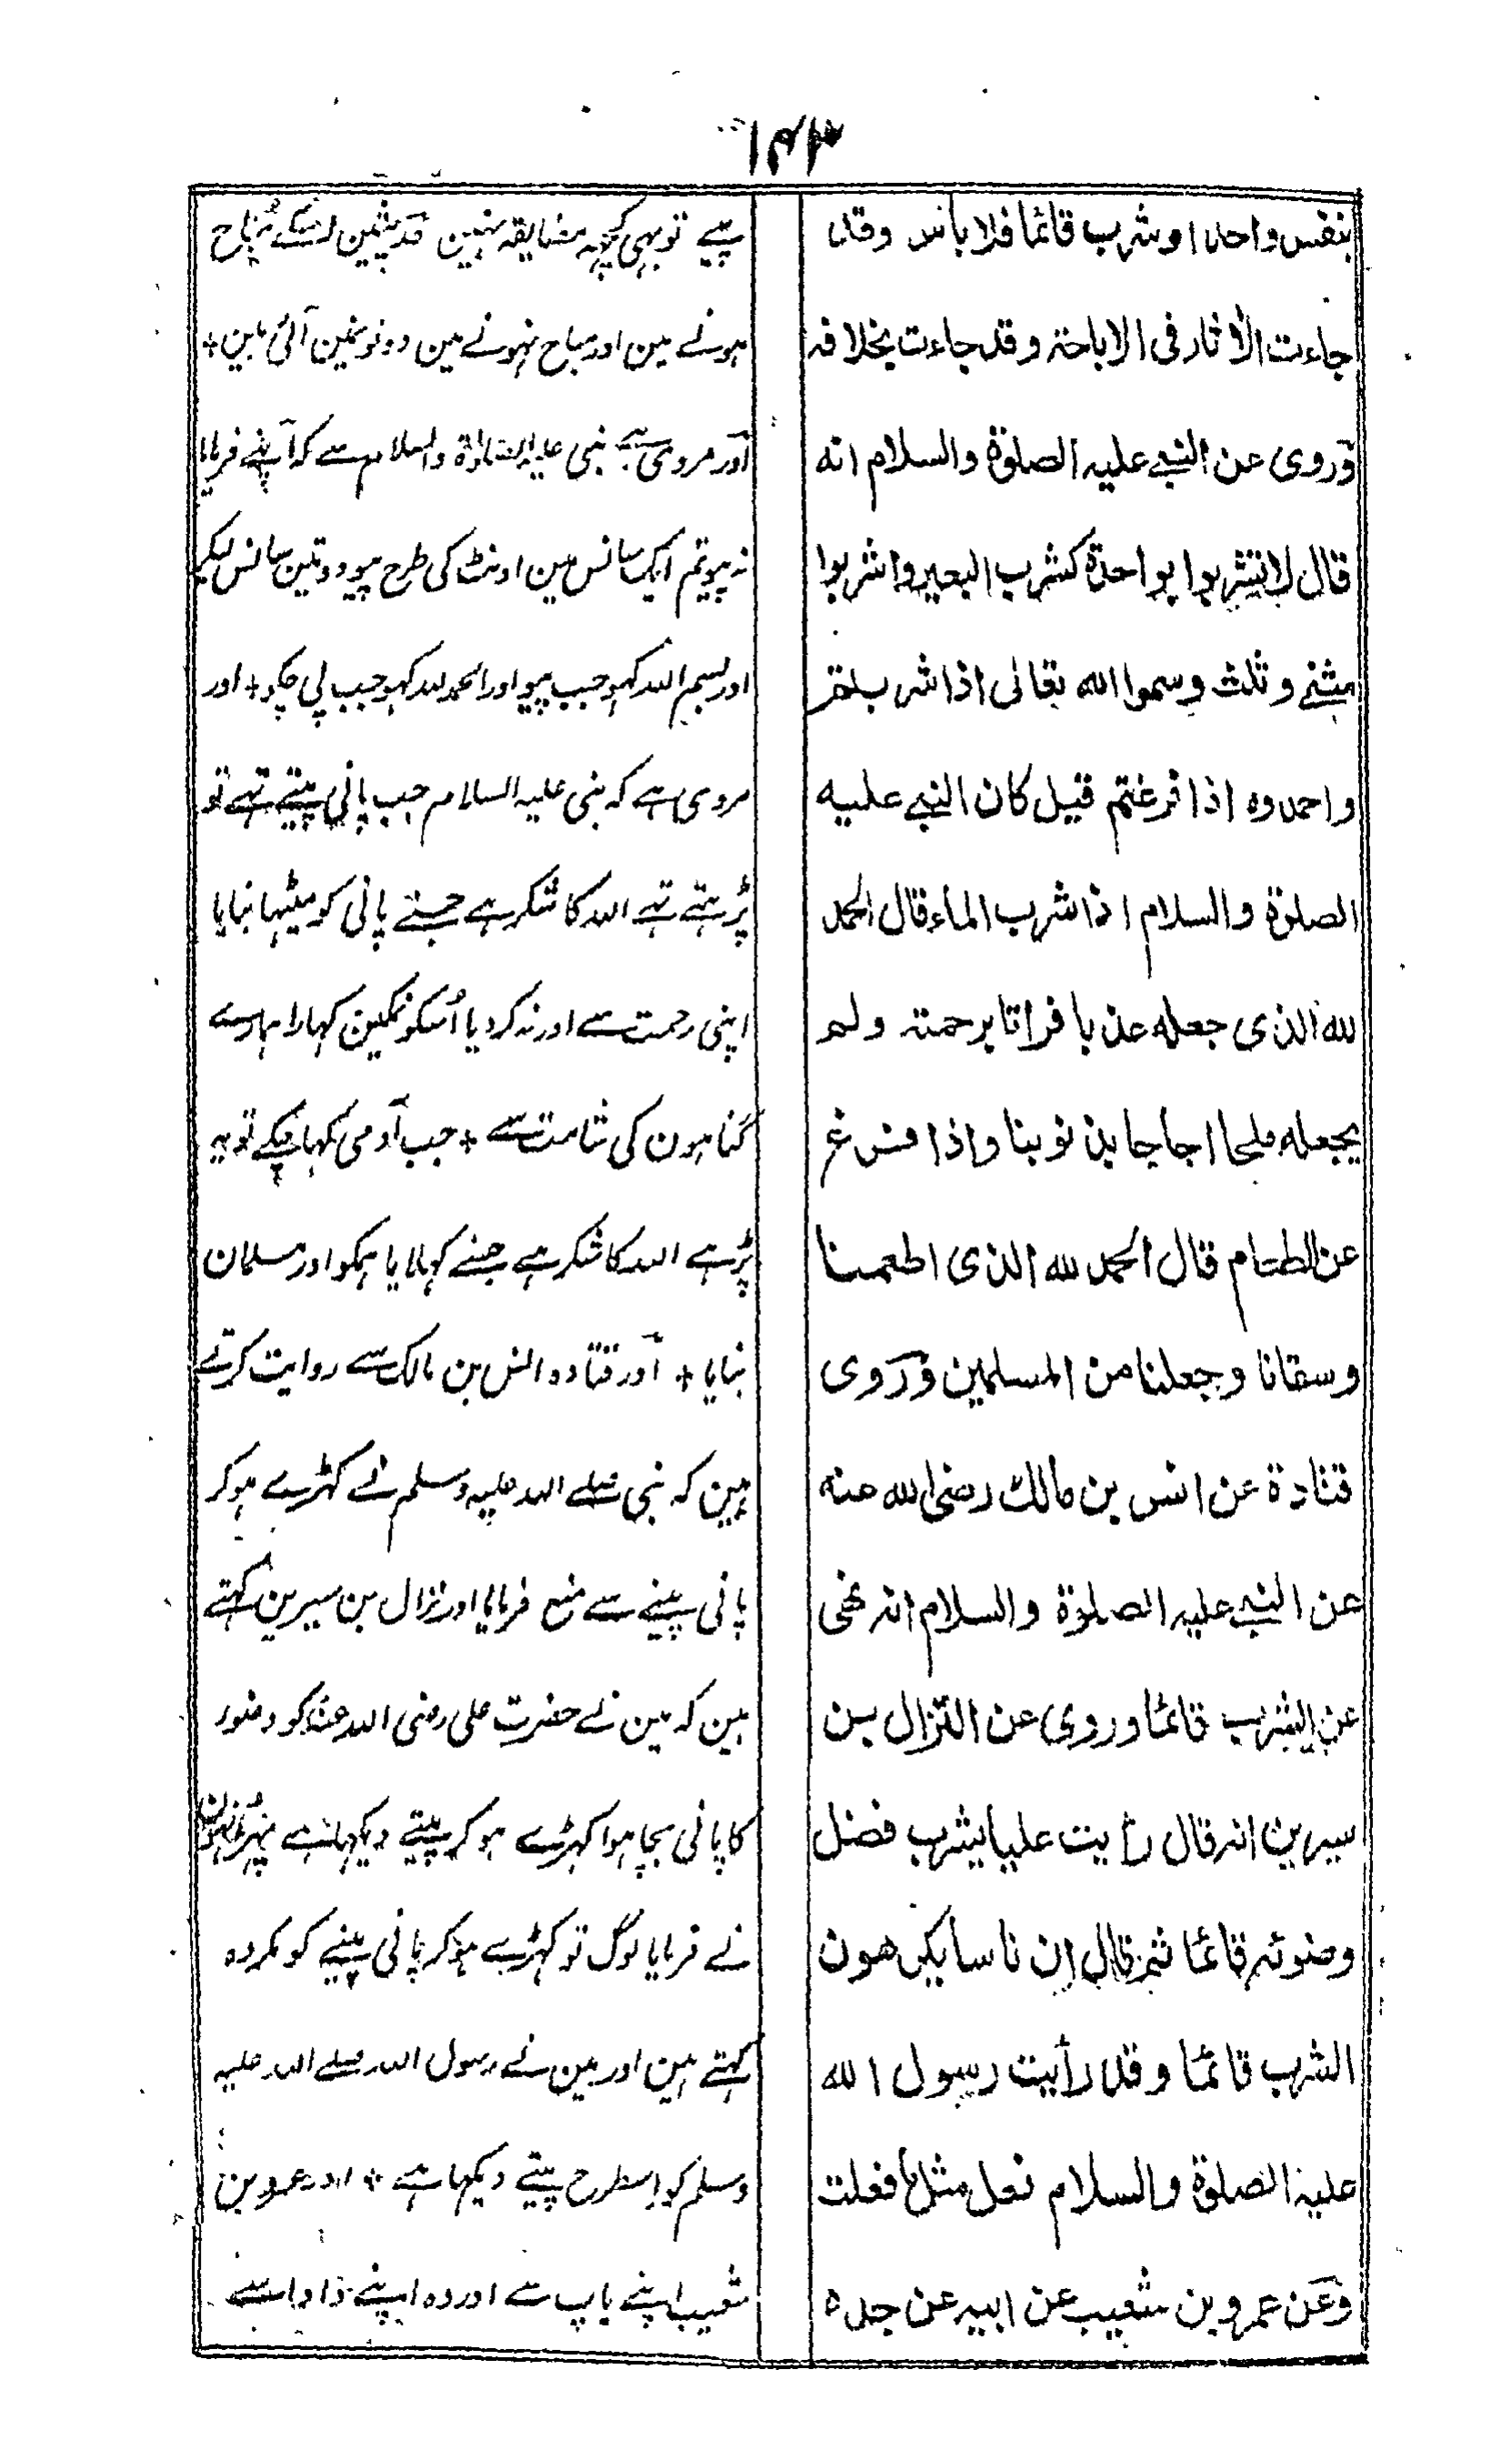 بنفس واحد او شرب قائما فلا باس وقد
جاءت الاٰثار فی الاباحتہ وقد جاءت بخلافہ
وَروی عن النبے علیہ الصلوٰة والسلام انہ
قال لا تشربوا بواحدة کشرب البعیر واشربوا
مثنے وثلث وسموا اللہ تعالٰی اذا شربتم
واحمدوہ اذا فرغتم قیل کان النبے علیہ
الصلوة والسلام اذا شرب الماء قال الحمد
للہ الذی جعلہ عذبا فراتا برحمتہ ولم
یجعلہ ملحا اجاجا بذنوبنا واذا فرغ
عن الطعام قال الحمد للہ الذی اطعمنا
وسقانا وجعلنا من المسلمین وَروی
قتادة عن انس بن مالک رضی اللہ عنہ
عن النبے علیہ الصلوة والسلام انہ نھی
عن الشرب قائما وروی عن النزال بن
سیرین انہ قال رأیت علیا یشرب فضل
وضوئہ قائما ثم قال ان ناسا یکرھون
الشرب قائما وقد رأیت رسول اللہ
علیہ الصلوة والسلام فعل مثل ما فعلت
وَعن عمرو بن شعیب عن ابیہ عن جدہ
پیے توبہی کچہہ مضایقہ نہین قدیثمین اسکے مُباح
ہونے مین اور مباح نہونے مین دونونمین آئی ہاین +
اَور مروی ہے نبی علیہ الصلوٰة والسلام سے کہ آپنے فرمایا
نہ پیوتم ایک سانس مین اونٹ کی طرح پیو دو تین سانس لیکر
اور بسم اللہ کہو جب پیو اور الحمد للہ کہو جب پی چکو + اور
مروی ہے کہ نبی علیہ السلام جب پانی پیتے تہے تو
پڑہتے تہے اللہ کا شکر ہے جسنے پانی کو میٹہا بنایا
اپنی رحمت سے اور نہ کردیا اُسکو نمکین کہارا ہمارے
گناہون کی شامت سے + جب آدمی کہاچکے تو یہ
پڑہے اللہ کا شکر ہے جسنے کہلایا ہمکو اور مسلمان
بنایا + اَور قتادہ انس بن مالک سے روایت کرتے
ہین کہ نبی صلے اللہ علیہ وسلم نے کہڑے ہوکر
پانی پینے سے منع فرمایا اور نزال بن سیرین کہتے
ہین کہ مین نے حضرت علی رضی اللہ عنہ کو وضو
کا پانی بچا ہوا کہڑے ہوکر پیتے دیکہا ہے پہر اُنہون
نے فرمایا لوگ تو کہڑے ہوکر پانی پینے کو مکروہ
کہتے ہین اور مین نے رسول اللہ صلے اللہ علیہ
وسلم کو اسطرح پیتے دیکہا ہے + اور عمرو بن
شعیب اپنے باپ سے اور وہ اپنے دادا سے